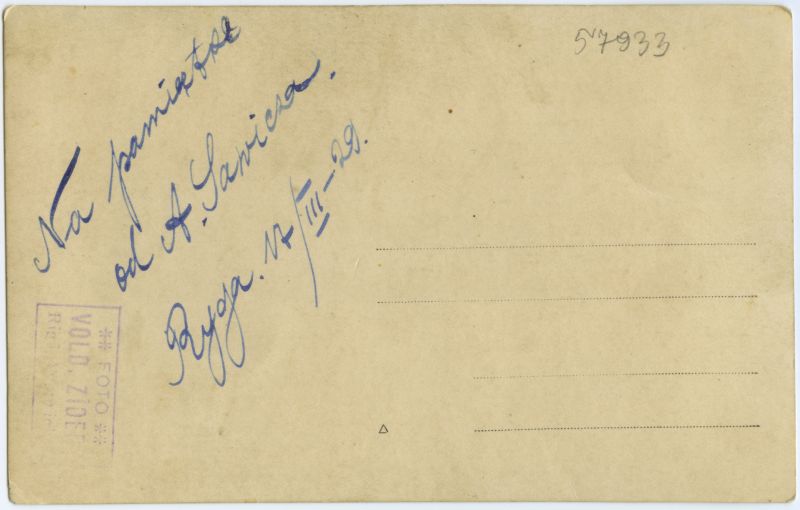 57933
Na pamiątkę
od A. Sawicza.
Ryga. 17/III-29.
** FOTO **
VOLD. ZIDE